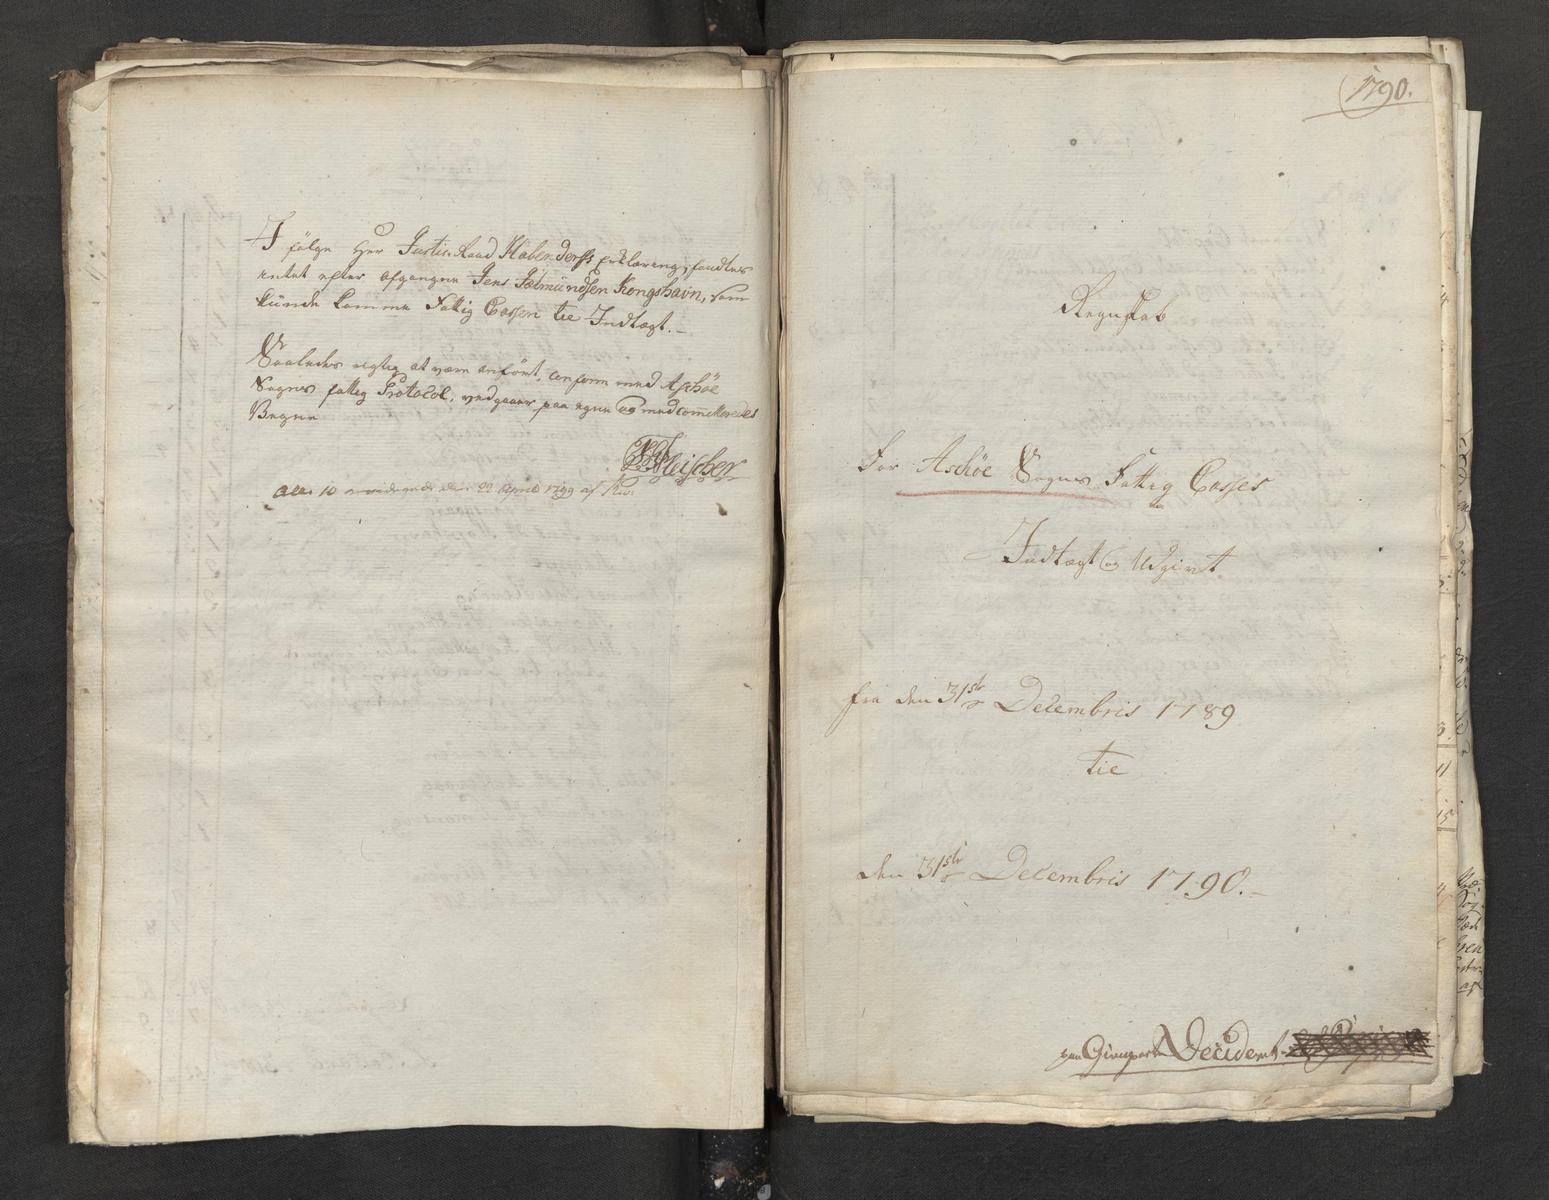 I følge Herr Justice Raad Halvendorffs Erklæring, fandtes
intet efter afgangne Jens Salmundsen Kongshavn, som
kunde komme Fattig Cassen tie Indtægt. –
Saaledes rigtig at være anført, conform med Aschøe
Sogns fattig Protocol, vedgaaer paa egne og med
Vegne
Fleischer
den 22 April 1799 af
1790.
Regnskab
For Aschöe Sogns Fattig Casses
Indtægt og Udgivt
fra den 31te Decembris 1789
tie
den 31te Decembris 1790. –
Decidert